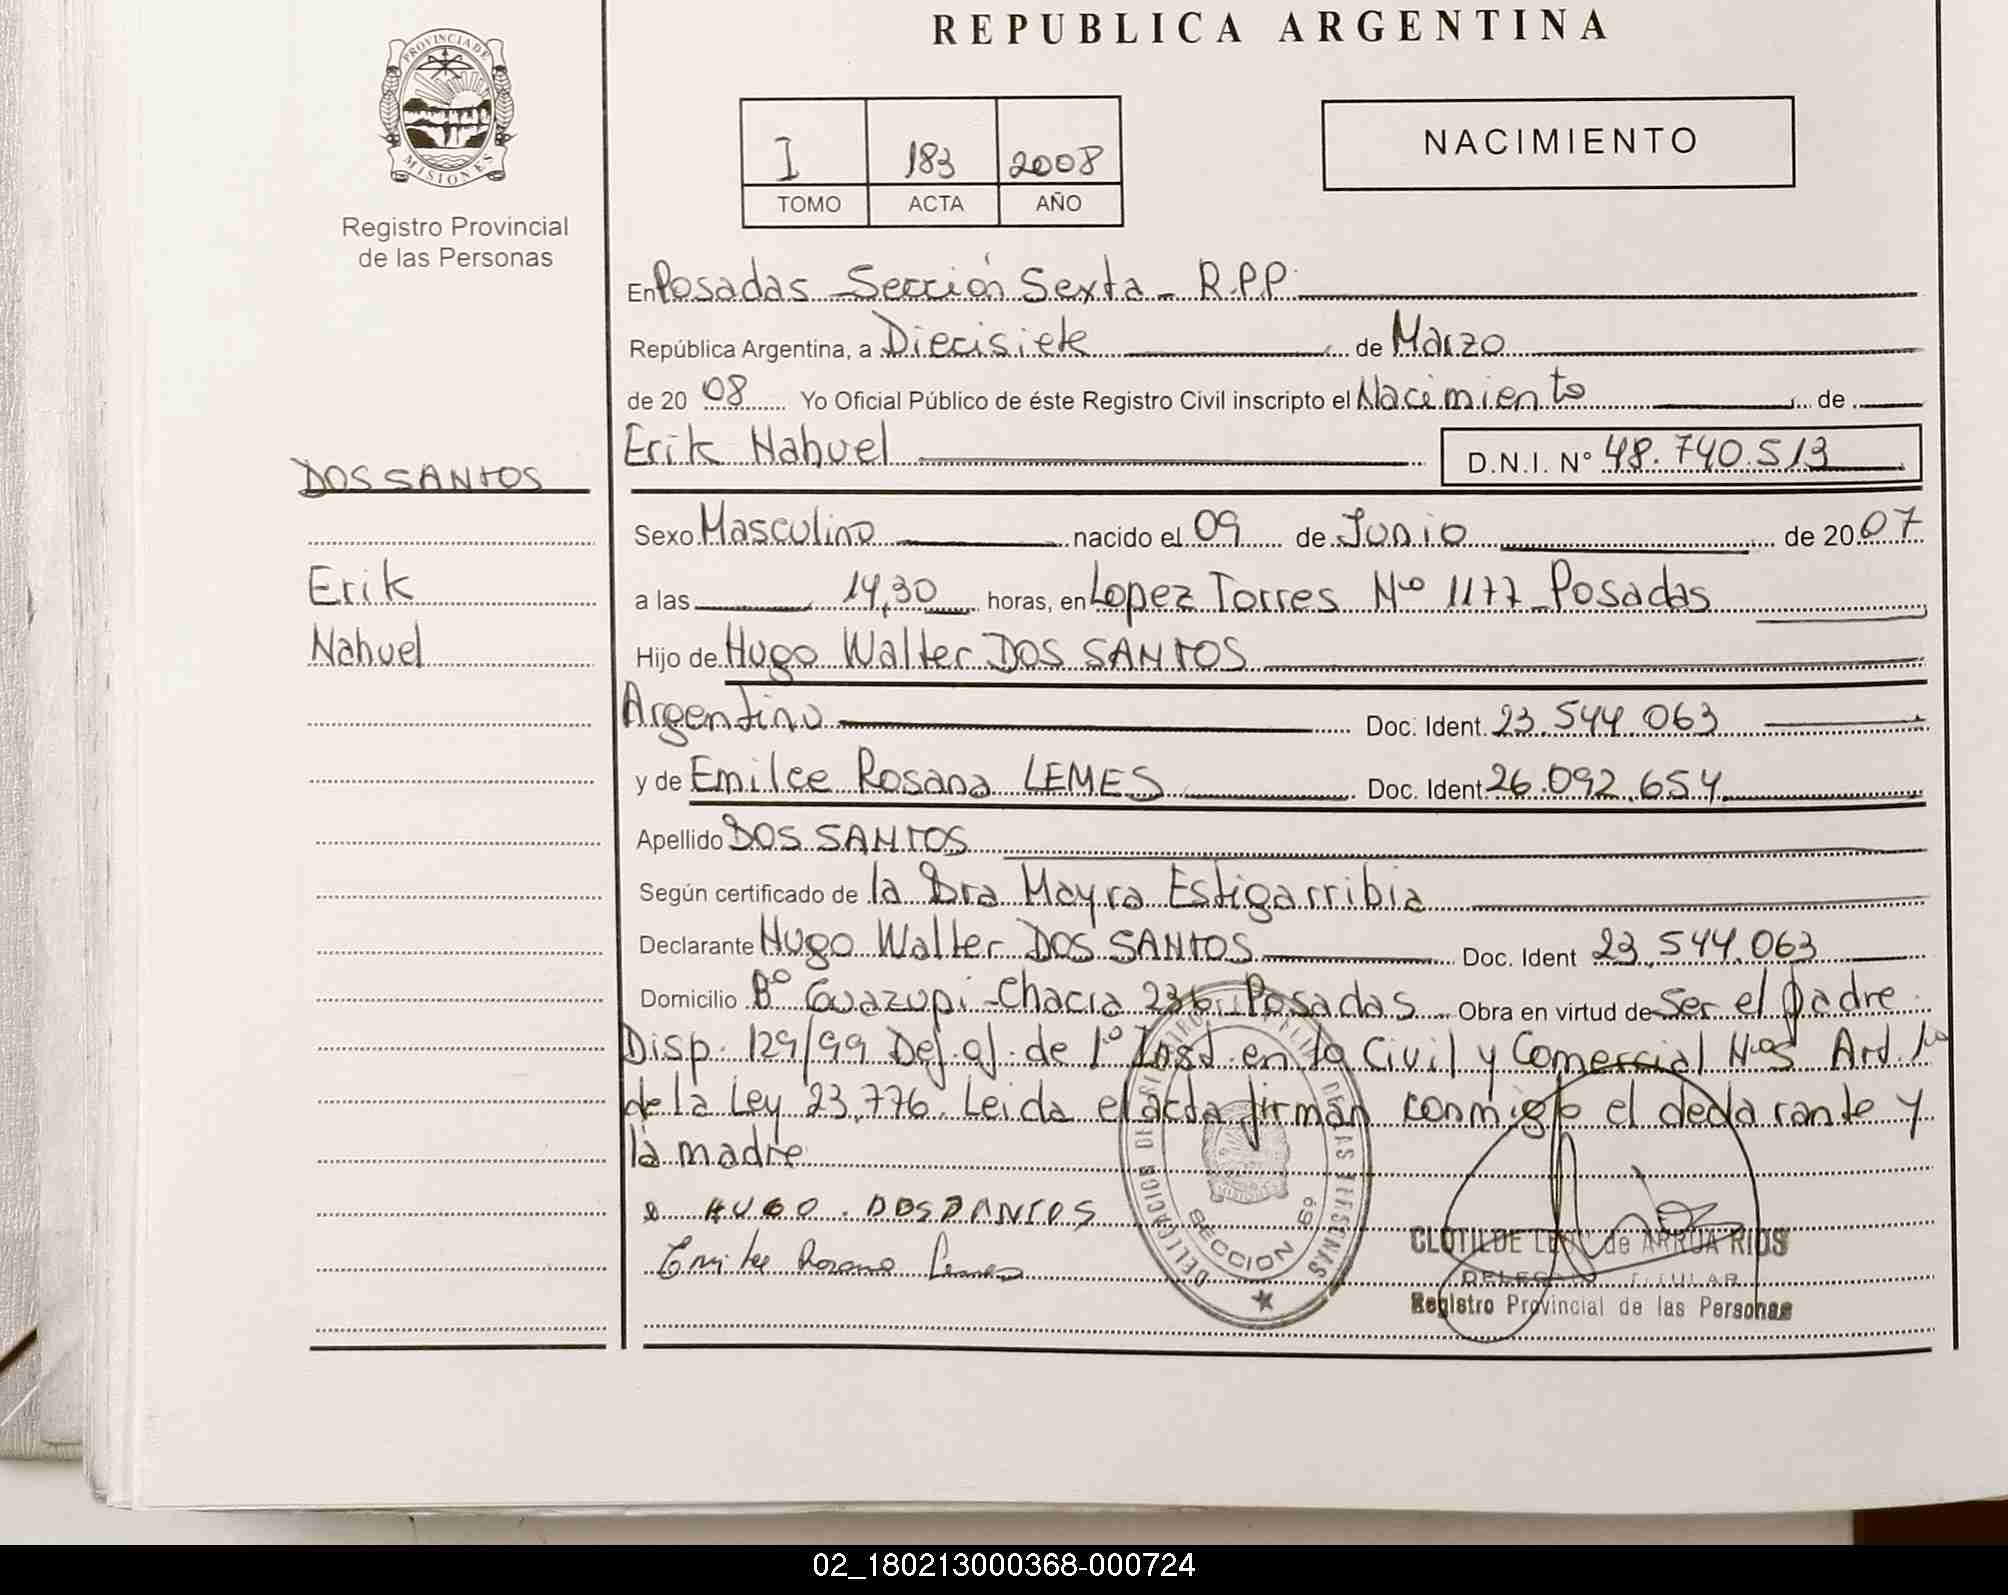 REPUBLICA ARGENTINA
PROVINCIA DE
MISIONES
Registro Provincial
de las Personas
I 183 2008
TOMO ACTA AÑO
NACIMIENTO
En Posadas Sección Sexta - R.P.P.
República Argentina, a Diecisiete de Marzo
de 20 08 Yo Oficial Público de éste Registro Civil inscripto el Nacimiento de
Erik Nahuel D.N.I. Nº 48.740.513
DOS SANTOS
Erik
Nahuel
Sexo Masculino nacido el 09 de Junio de 20 07
a las 14,30 horas, en Lopez Torres Nº 1177 Posadas
Hijo de Hugo Walter DOS SANTOS
Argentino Doc. Ident. 23.544.063
y de Emilce Rosana LEMES Doc. Ident 26.092.654
Apellido DOS SANTOS
Según certificado de la Dra Mayra Estigarribia
Declarante Hugo Walter DOS SANTOS Doc. Ident 23.544.063
Domicilio Bº Guazupi - Chacra 236 Posadas Obra en virtud de Ser el padre
Disp. 129/99 Def. of. de 1º Inst. en lo Civil y Comercial Art. 1º
de la Ley 23.776. Leida el acta firman conmigo el declarante y
la madre
HUGO DOS SANTOS
Emilce Rosana Lemes
SECCION 6º
CLOTILDE LEON de ARRUA RIOS
DELEGADO TITULAR
Registro Provincial de las Personas
02_180213000368-000724